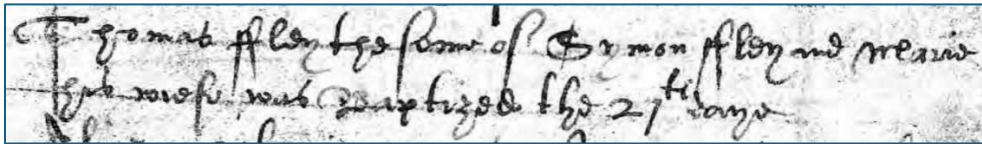 Thomas ffley the sonne of Symon ffley and Marie
his wiefe was Baptized the 21th daye